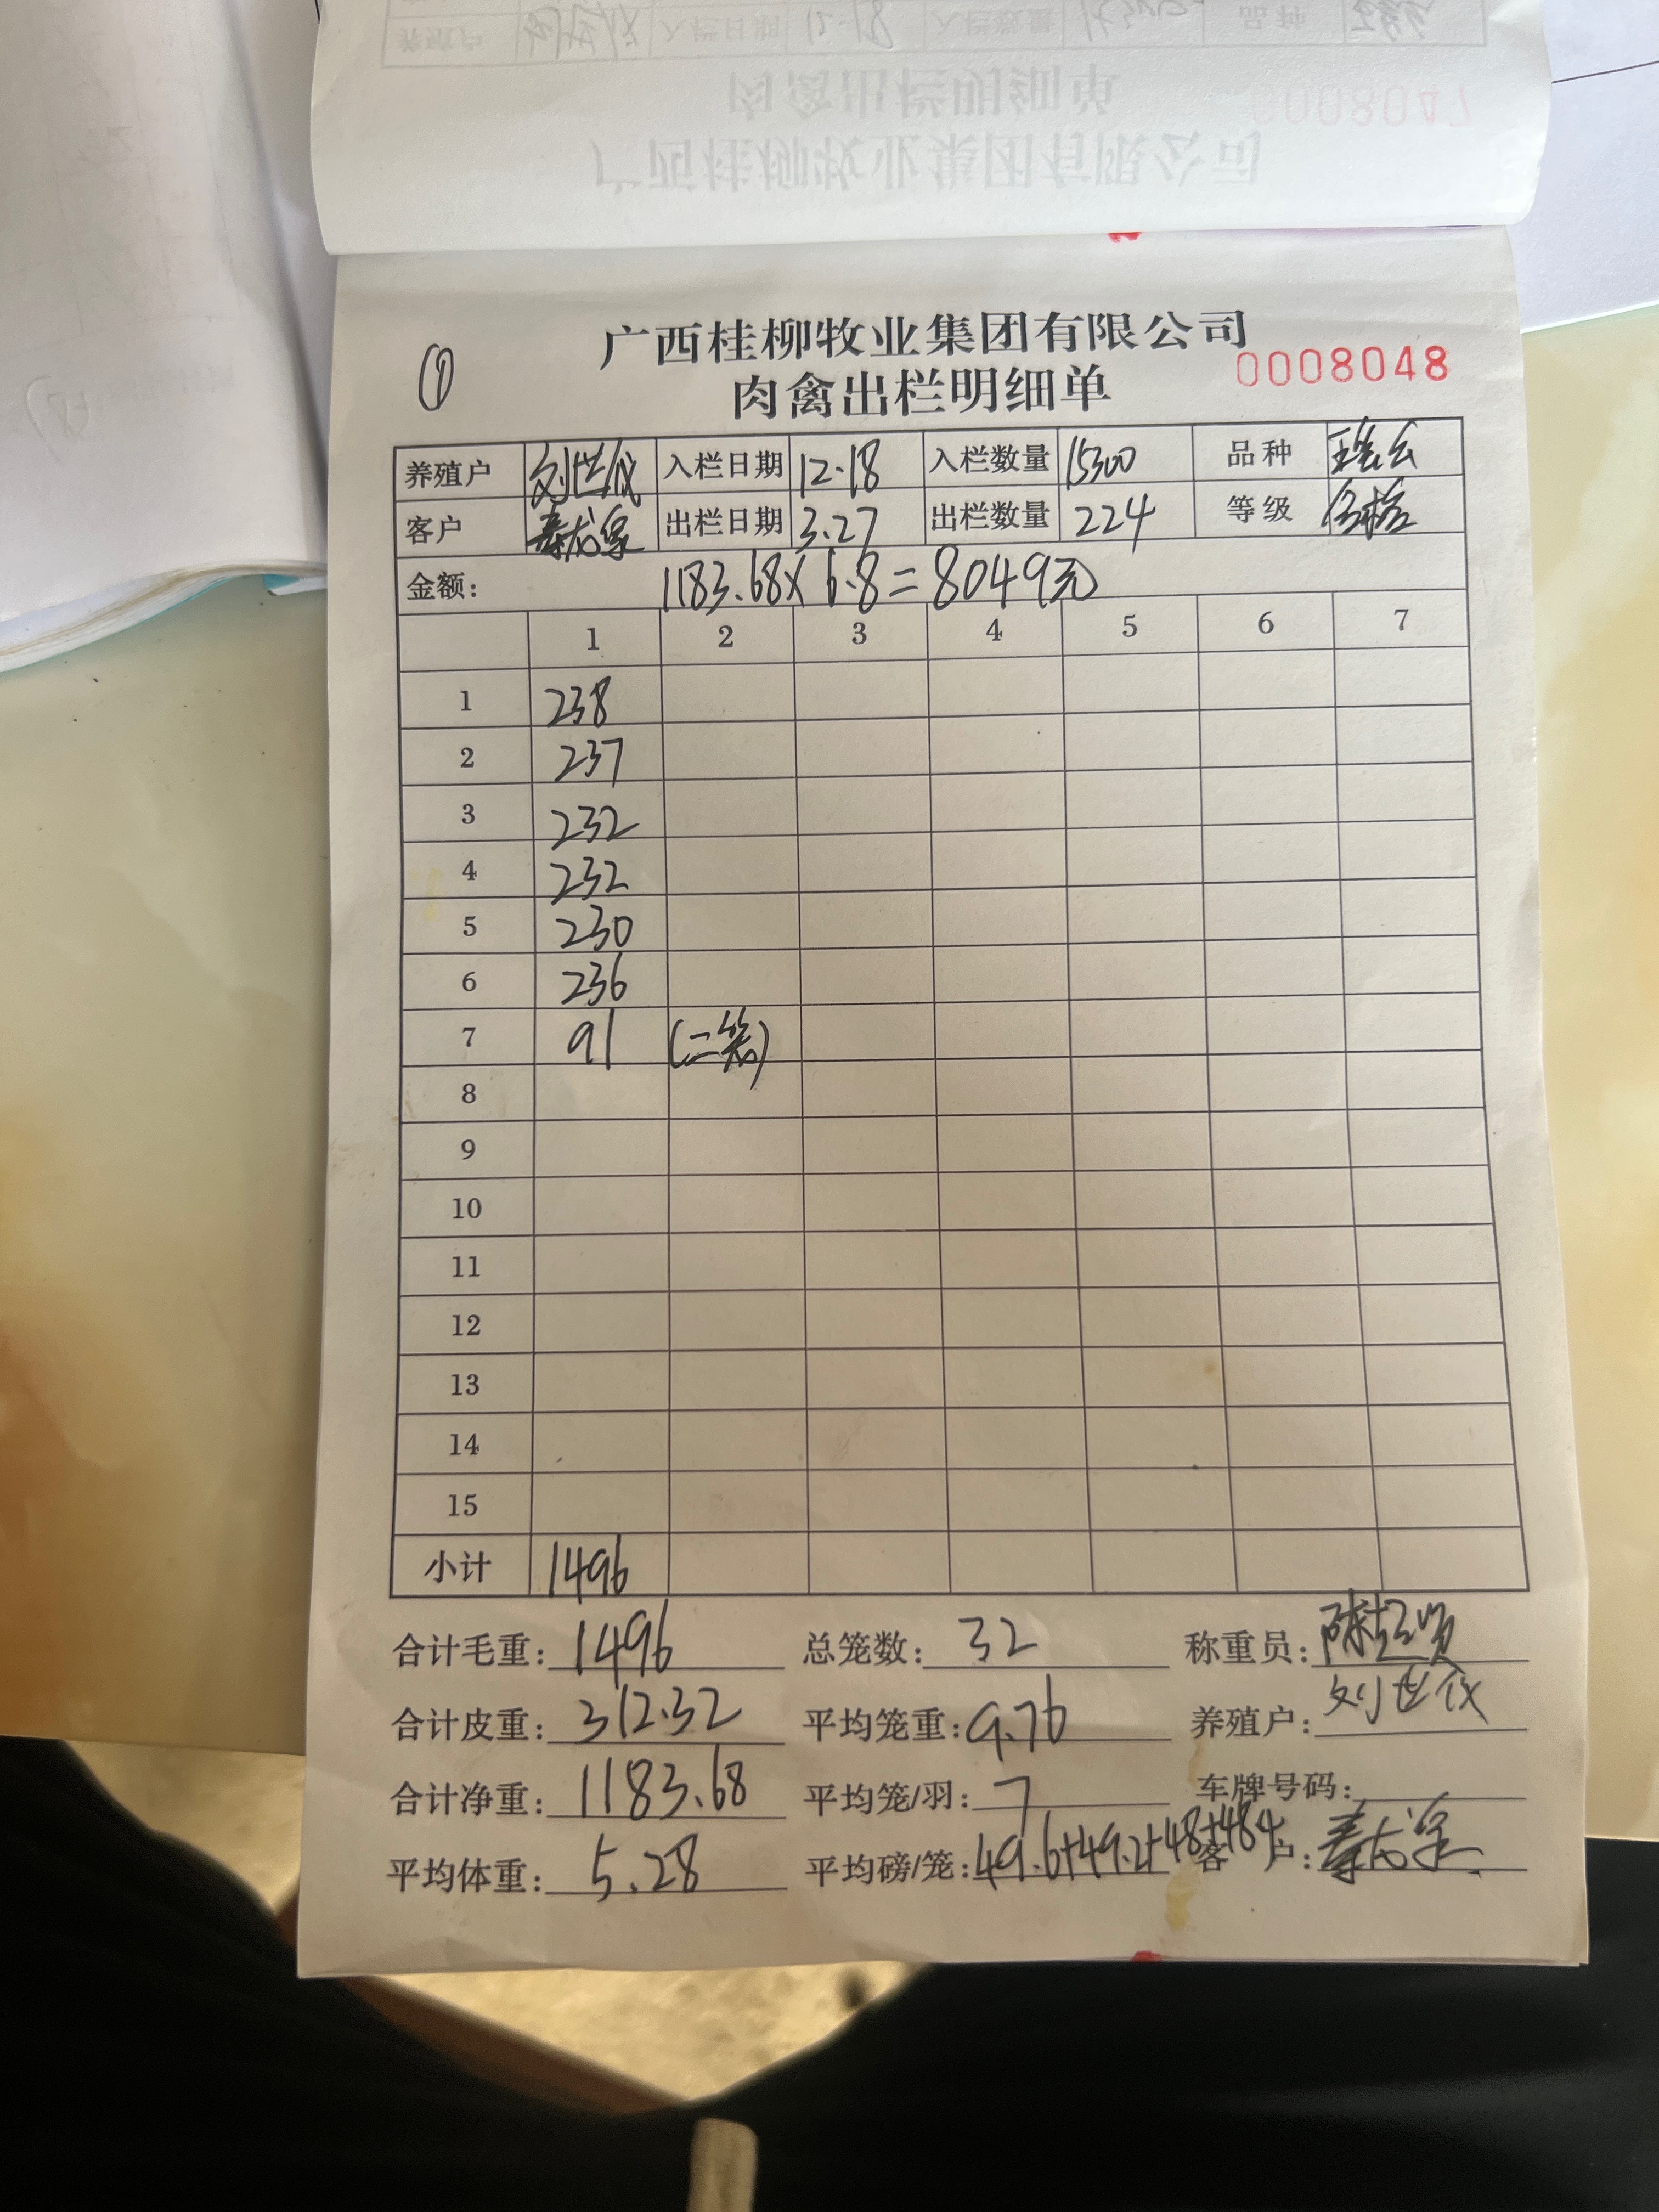 ① 广西桂柳牧业集团有限公司
肉禽出栏明细单 0008048
养殖户 刘世仪 入栏日期 12.18 入栏数量 15300 品种
客户 出栏日期 3.27 出栏数量 224 等级 合格
金额: 1183.68×6.8=8049元
1 2 3 4 5 6 7
1 238
2 237
3 232
4 232
5 230
6 236
7 91 (二笼)
8
9
10
11
12
13
14
15
小计 1496
合计毛重: 1496 总笼数: 32 称重员:
合计皮重: 312.32 平均笼重: 9.76 养殖户: 刘世仪
合计净重: 1183.68 平均笼/羽: 7 车牌号码:
平均体重: 5.28 平均磅/笼: 49.6+49.2+48+48.4 客户: